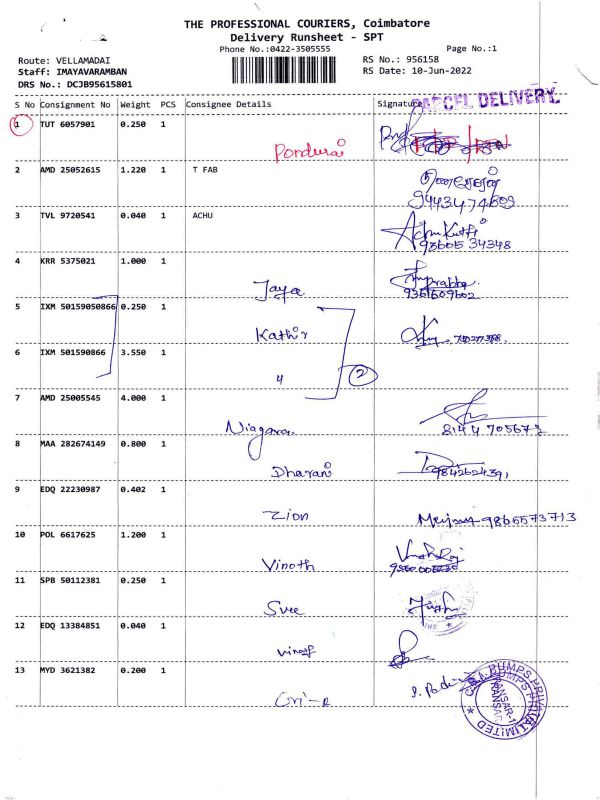 THE PROFESSIONAL COURIERS, Coimbatore
Delivery Runsheet - SPT
Phone No.:0422-3505555 Page No.:1
Route: VELLAMADAI RS No.: 956158
Staff: IMAYAVARAMBAN RS Date: 10-Jun-2022
DRS No.: DCJB95615801
S No Consignment No Weight PCS Consignee Details Signature
PARCEL DELIVERY
1 TUT 6057901 0.250 1
Pondurai
2 AMD 25052615 1.220 1 T FAB
9443474609
3 TVL 9720541 0.040 1 ACHU
AchuKutti
93605 34348
4 KRR 5375021 1.000 1
Jaya
9361609602
5 IXM 50159050866 0.250 1
Kathir
6 IXM 501590866 3.550 1
4 2
7 AMD 25005545 4.000 1
Niagara
8144 705672
8 MAA 282674149 0.800 1
Dharani
9842624391
9 EDQ 22230987 0.402 1
Zion 9865573713
10 POL 6617625 1.200 1
Vinoth
11 SPB 50112381 0.250 1
Sree
12 EDQ 13384851 0.040 1
13 MYD 3621382 0.200 1
PUMPS PRIVATE LIMITED